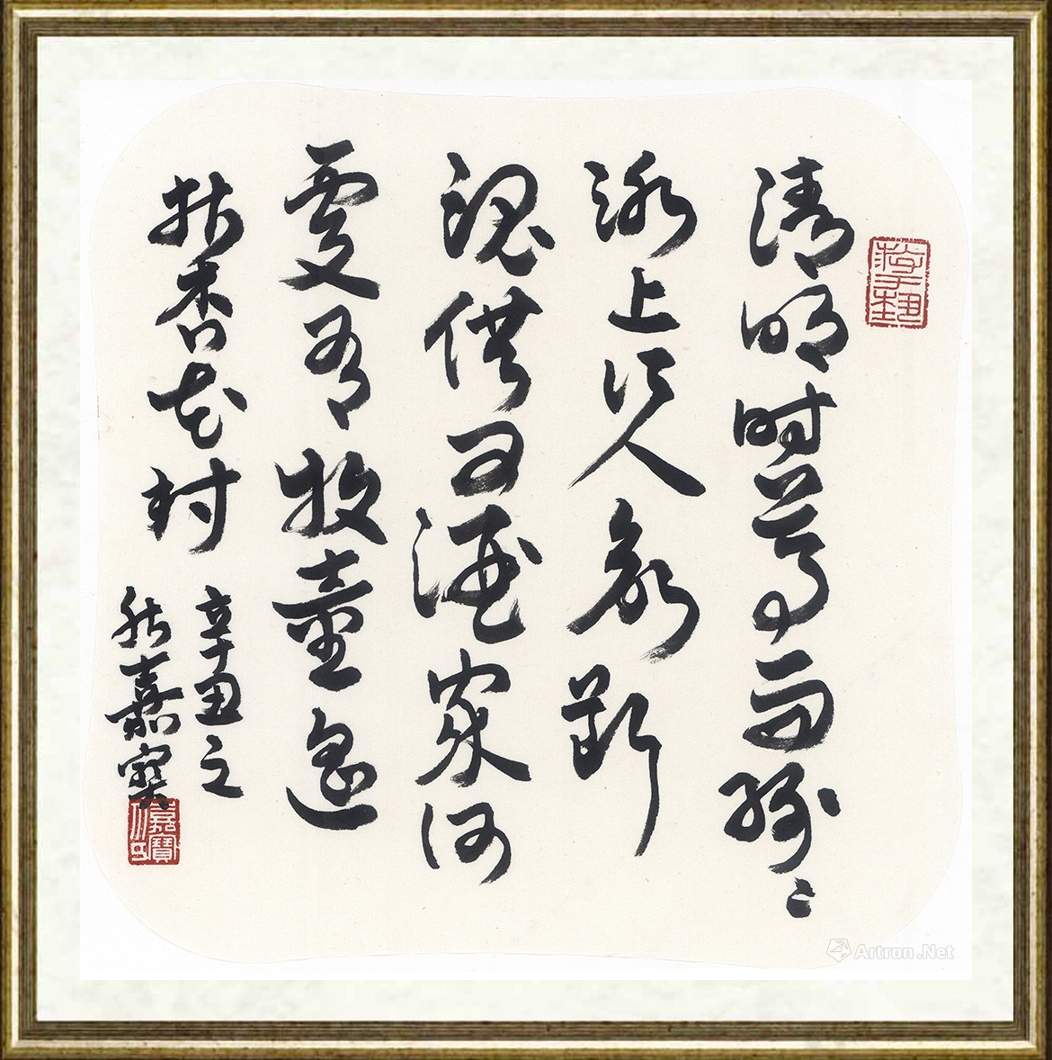 清明时节雨纷々
路上行人欲断
魂借问酒家何
處有牧童遥
指杏花村
辛丑之
秋嘉宝
嘉寶